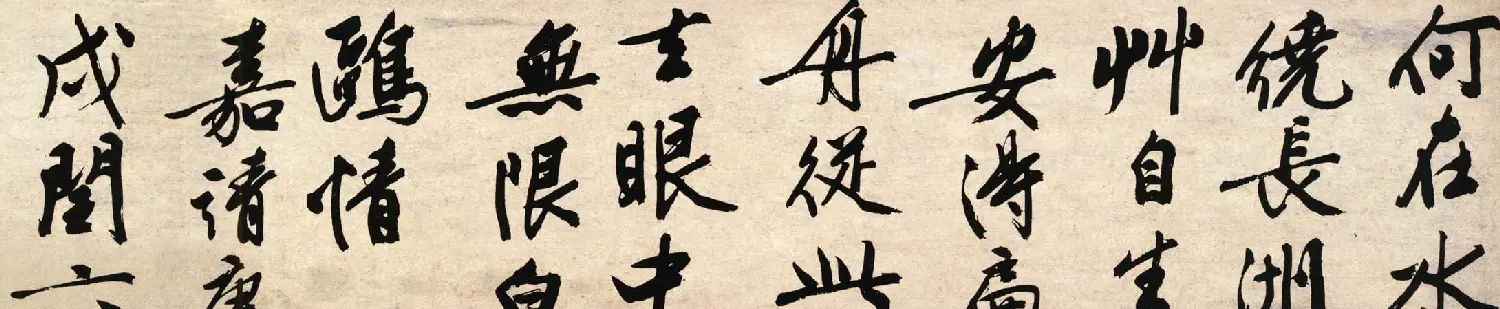 何在水
繞長洲
艸自生
安得扁
舟從此
去眼中
無限白
鷗情
嘉靖庚
戌閏六